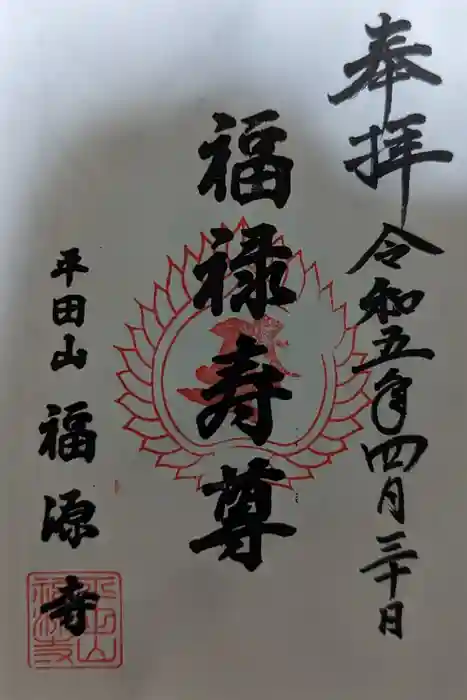 奉拝 令和五年四月三十日
福禄寿尊
平田山 福源寺
平田山
福源寺